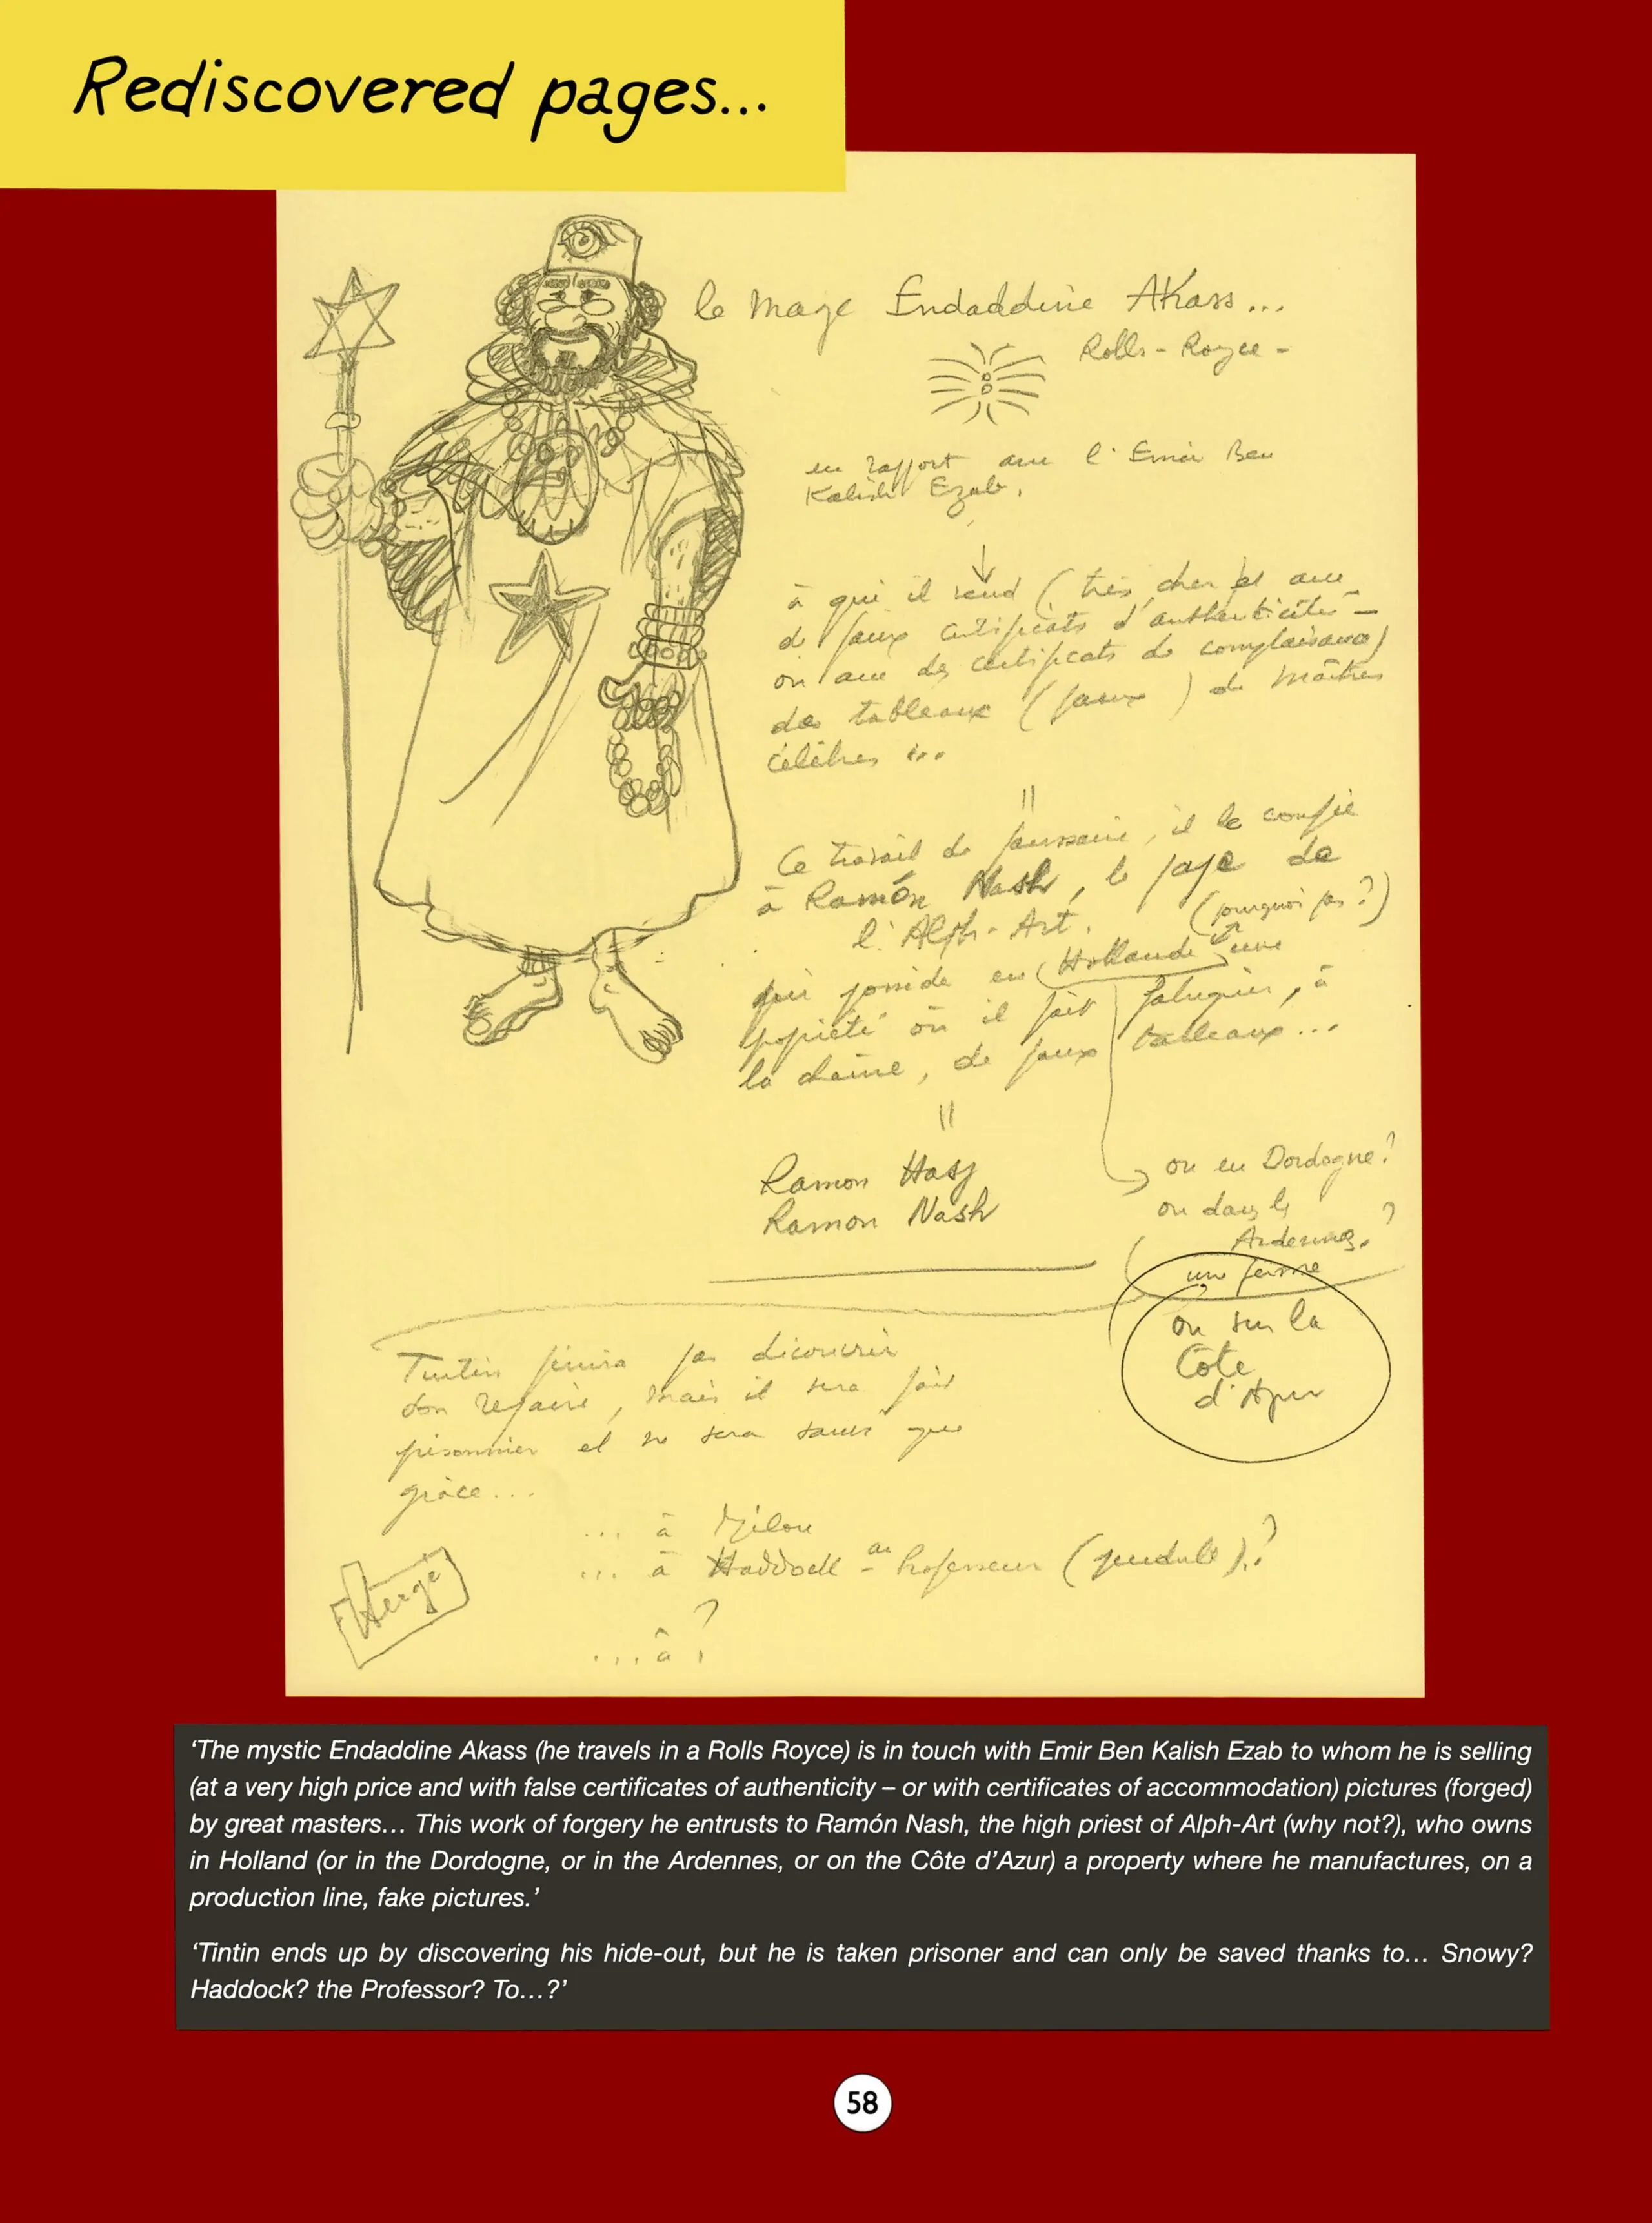 Rediscovered pages...
le mage Endaddine Akass...
Rolls-Royce-
en rapport avec l'Emir Ben
Kalish Ezab,
à qui il vend (très cher et avec
de faux certificats d'authenticité –
ou avec des certificats de complaisance)
des tableaux (faux) de maîtres
célèbres ...
Ce travail de faussaire, il le confie
à Ramón Nash, le pape de
l'Alph-Art. (pourquoi pas?)
qui possède en Hollande une
propriété où il fait fabriquer, à
la chaîne, de faux tableaux...
Ramon Hasj
Ramon Nash
ou en Dordogne?
ou dans les
Ardennes?
une ferme
ou sur la
Côte
d'Azur
Tintin finira par découvrir
son repaire, mais il sera fait
prisonnier et ne sera sauvé que
grâce...
... à Milou
... à Haddock - au Professeur (pendule)?
... à ?
Hergé
‘The mystic Endaddine Akass (he travels in a Rolls Royce) is in touch with Emir Ben Kalish Ezab to whom he is selling
(at a very high price and with false certificates of authenticity – or with certificates of accommodation) pictures (forged)
by great masters... This work of forgery he entrusts to Ramón Nash, the high priest of Alph-Art (why not?), who owns
in Holland (or in the Dordogne, or in the Ardennes, or on the Côte d’Azur) a property where he manufactures, on a
production line, fake pictures.’
‘Tintin ends up by discovering his hide-out, but he is taken prisoner and can only be saved thanks to... Snowy?
Haddock? the Professor? To...?’
58